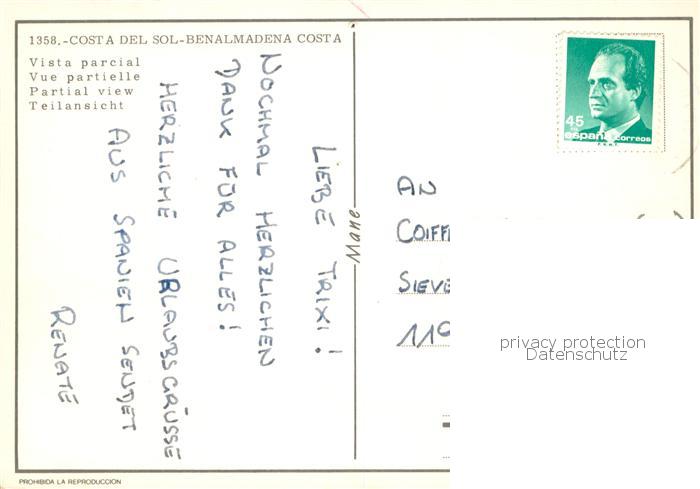 1358.-COSTA DEL SOL-BENALMADENA COSTA
Vista parcial
Vue partielle
Partial view
Teilansicht
LIEBE TRIXI!
NOCHMAL HERZLICHEN
DANK FÜR ALLES!
HERZLICHE URLAUBSGRÜSSE
AUS SPANIEN SENDET
RENATE
Mane
45
españa correos
F.N.M.T.
AN
COIFF
SIEVE
110
privacy protection
Datenschutz
PROHIBIDA LA REPRODUCCION